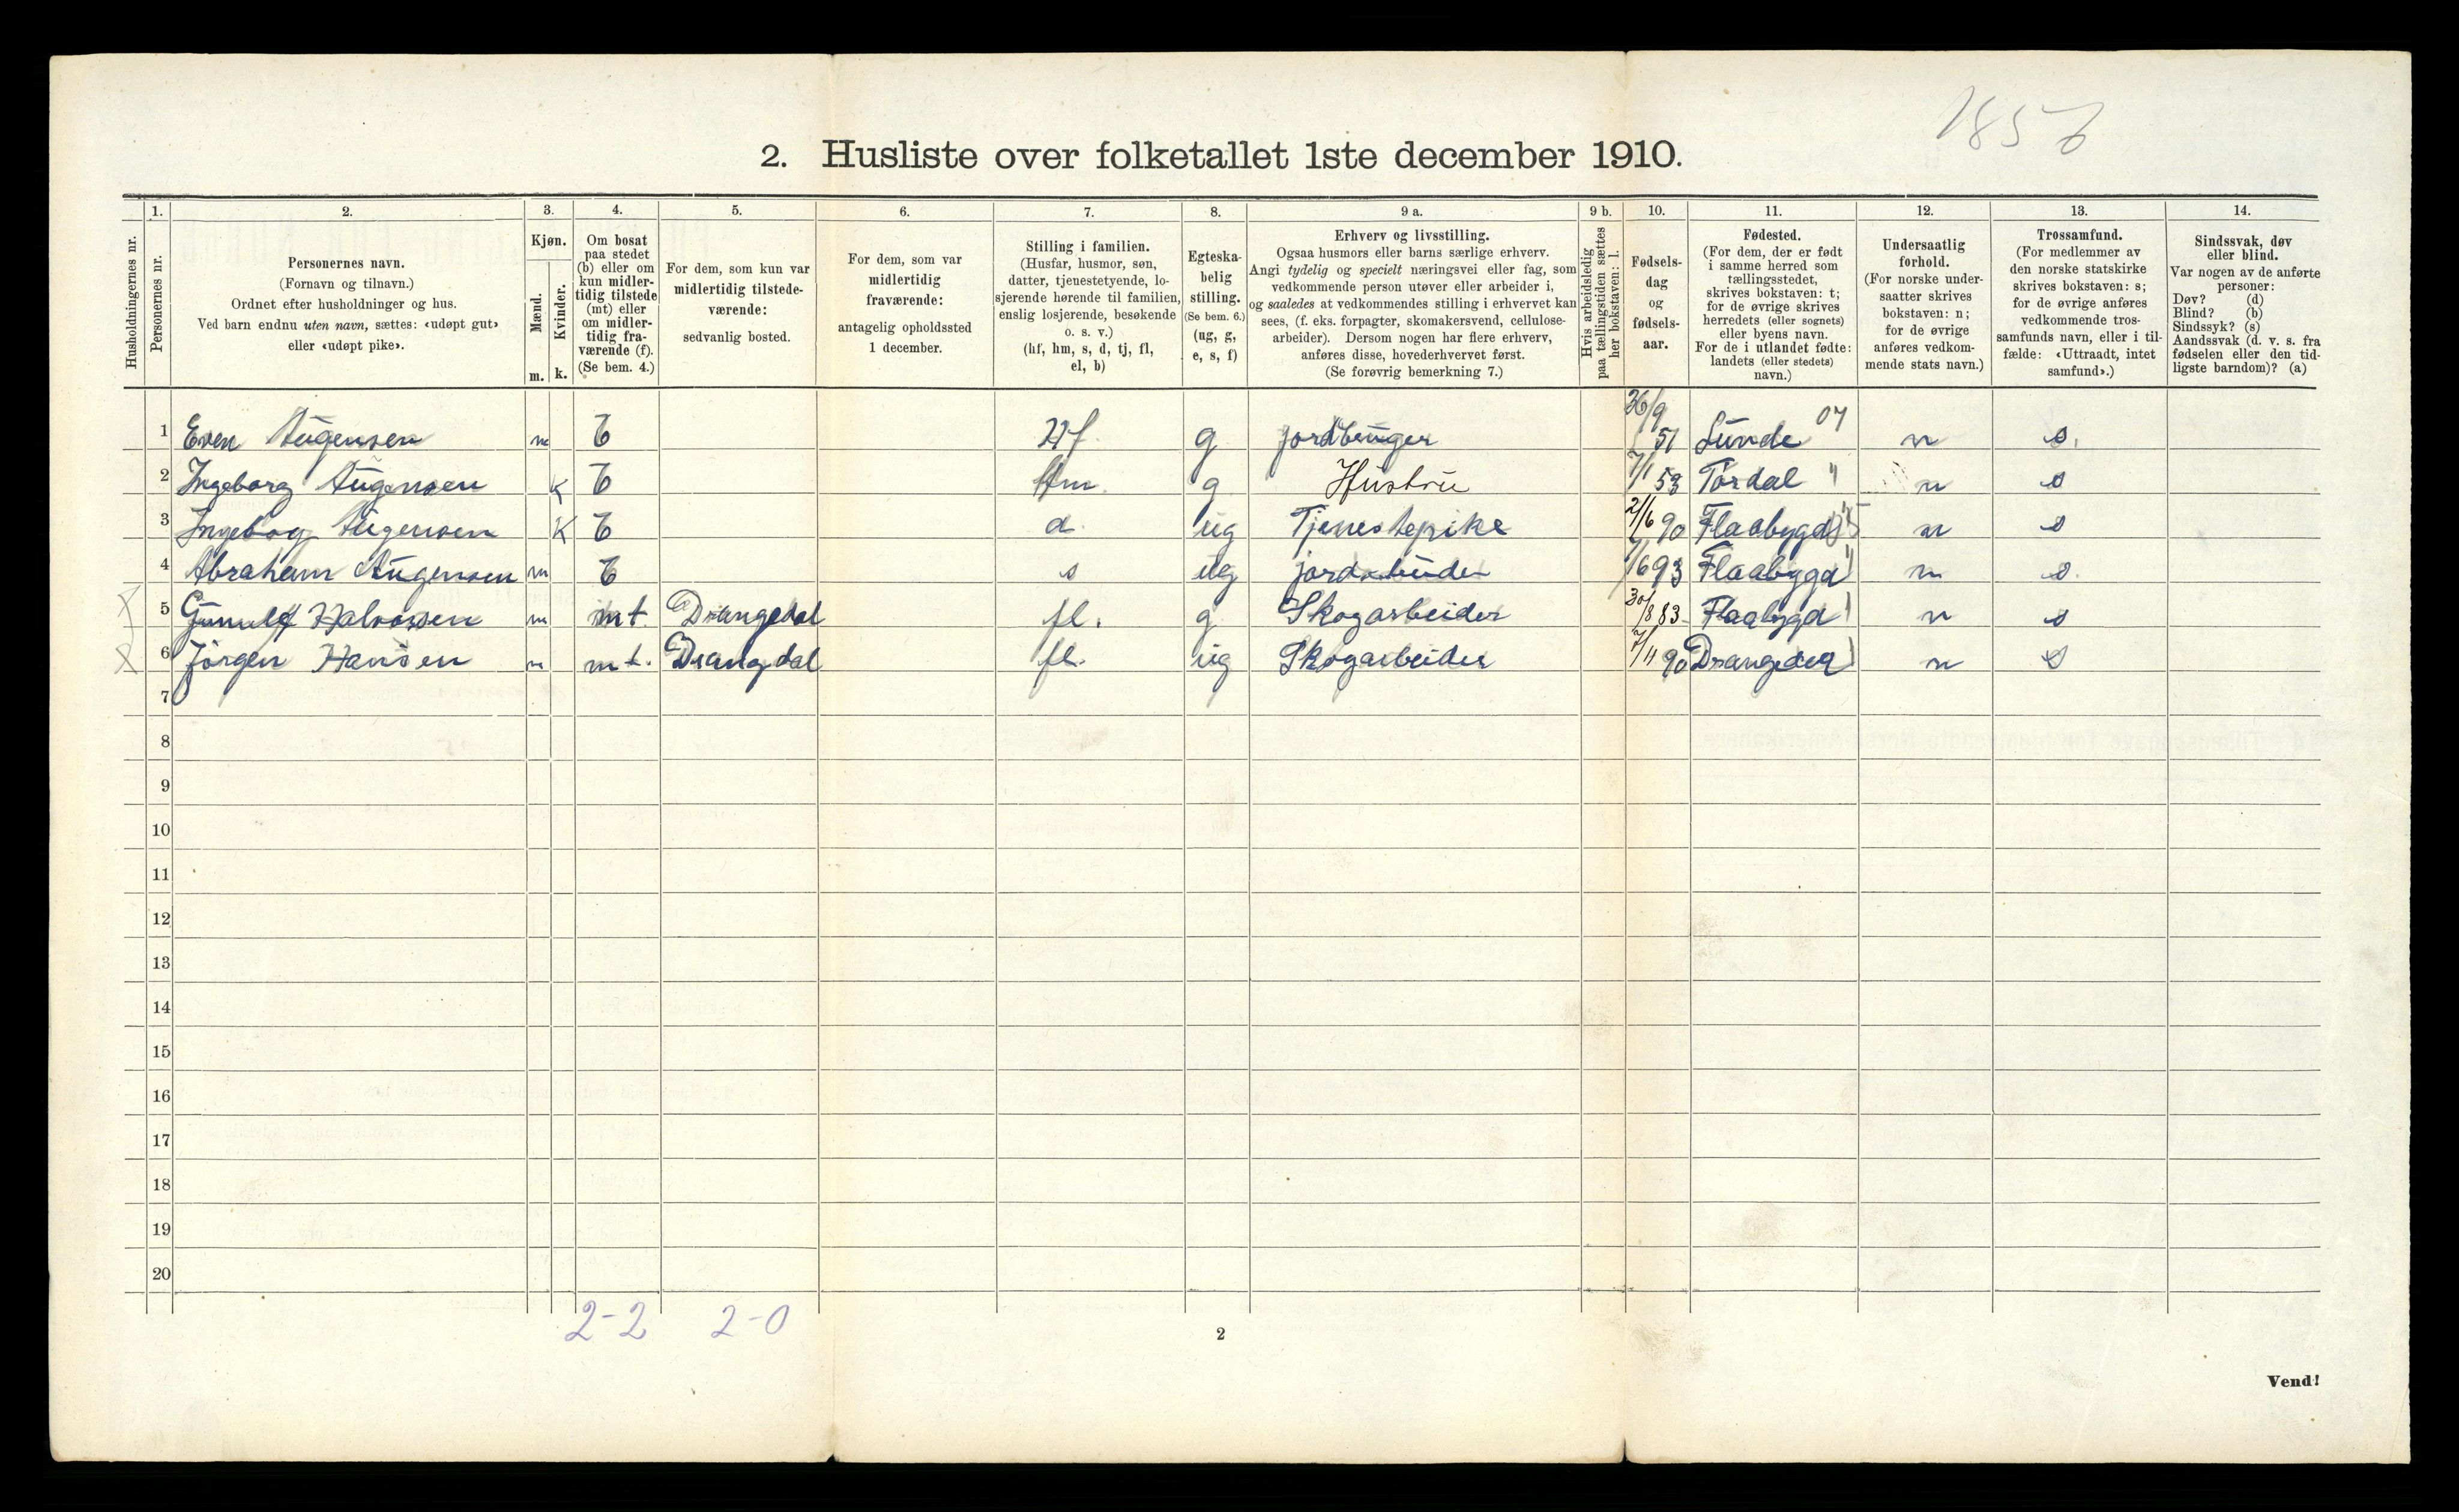 1856
2. Husliste over folketallet 1ste december 1910.
Husholdningernes nr.
1.
Personernes nr.
2.
Personernes navn.
(Fornavn og tilnavn.)
Ordnet efter husholdninger og hus.
Ved barn endnu uten navn, sættes: «udøpt gut»
eller «udøpt pike».
3.
Kjøn.
Mænd.
Kvinder.
m.
k.
4.
Om bosat
paa stedet
(b) eller om
kun midler-
tidig tilstede
(mt) eller
om midler-
tidig fra-
værende (f).
(Se bem. 4.)
5.
For dem, som kun var
midlertidig tilstede-
værende:
sedvanlig bosted.
6.
For dem, som var
midlertidig
fraværende:
antagelig opholdssted
1 december.
7.
Stilling i familien.
(Husfar, husmor, søn,
datter, tjenestetyende, lo-
sjerende hørende til familien,
enslig losjerende, besøkende
o. s. v.)
(hf, hm, s, d, tj, fl,
el, b)
8.
Egteska-
belig
stilling.
(Se bem. 6.)
(ug, g,
e, s, f)
9 a.
Erhverv og livsstilling.
Ogsaa husmors eller barns særlige erhverv.
Angi tydelig og specielt næringsvei eller fag, som
vedkommende person utøver eller arbeider i,
og saaledes at vedkommendes stilling i erhvervet kan
sees, (f. eks. forpagter, skomakersvend, cellulose-
arbeider). Dersom nogen har flere erhverv,
anføres disse, hovederhvervet først.
(Se forøvrig bemerkning 7.)
9 b.
Hvis arbeidsledig
paa tællingstiden sættes
her bokstaven: l.
10.
Fødsels-
dag
og
fødsels-
aar.
11.
Fødested.
(For dem, der er født
i samme herred som
tællingsstedet,
skrives bokstaven: t;
for de øvrige skrives
herredets (eller sognets)
eller byens navn.
For de i utlandet fødte:
landets (eller stedets)
navn.)
12.
Undersaatlig
forhold.
(For norske under-
saatter skrives
bokstaven: n;
for de øvrige
anføres vedkom-
mende stats navn.)
13.
Trossamfund.
(For medlemmer av
den norske statskirke
skrives bokstaven: s;
for de øvrige anføres
vedkommende tros-
samfunds navn, eller i til-
fælde: «Uttraadt, intet
samfund».)
14.
Sindssvak, døv
eller blind.
Var nogen av de anførte
personer:
Døv? (d)
Blind? (b)
Sindssyk? (s)
Aandssvak (d. v. s. fra
fødselen eller den tid-
ligste barndom)? (a)
1 Even Augensen m b Hf. g jordbruger /9 51 Lunde 04 n s.
2 Ingeborg Augensen k b Hm. g Hustru 7/1 53 Tördal " n s
3 Ingebog Augensen K b d. ug Tjenestepike 2/6 90 Flaabygd n s
4 Abraham Augensen m b s ug 7/6 93 Flaabygd " n s.
5 Halvorsen m mt. Drangedal fl. g Skogarbeider 30/8 83 Flaabygd n s
6 Jörgen Hansen m mt. Drangdal fl. ug Skogarbeider 7/11 90 n s
7
8
9
10
11
12
13
14
15
16
17
18
19
20
2-2 2-0
2
Vend!